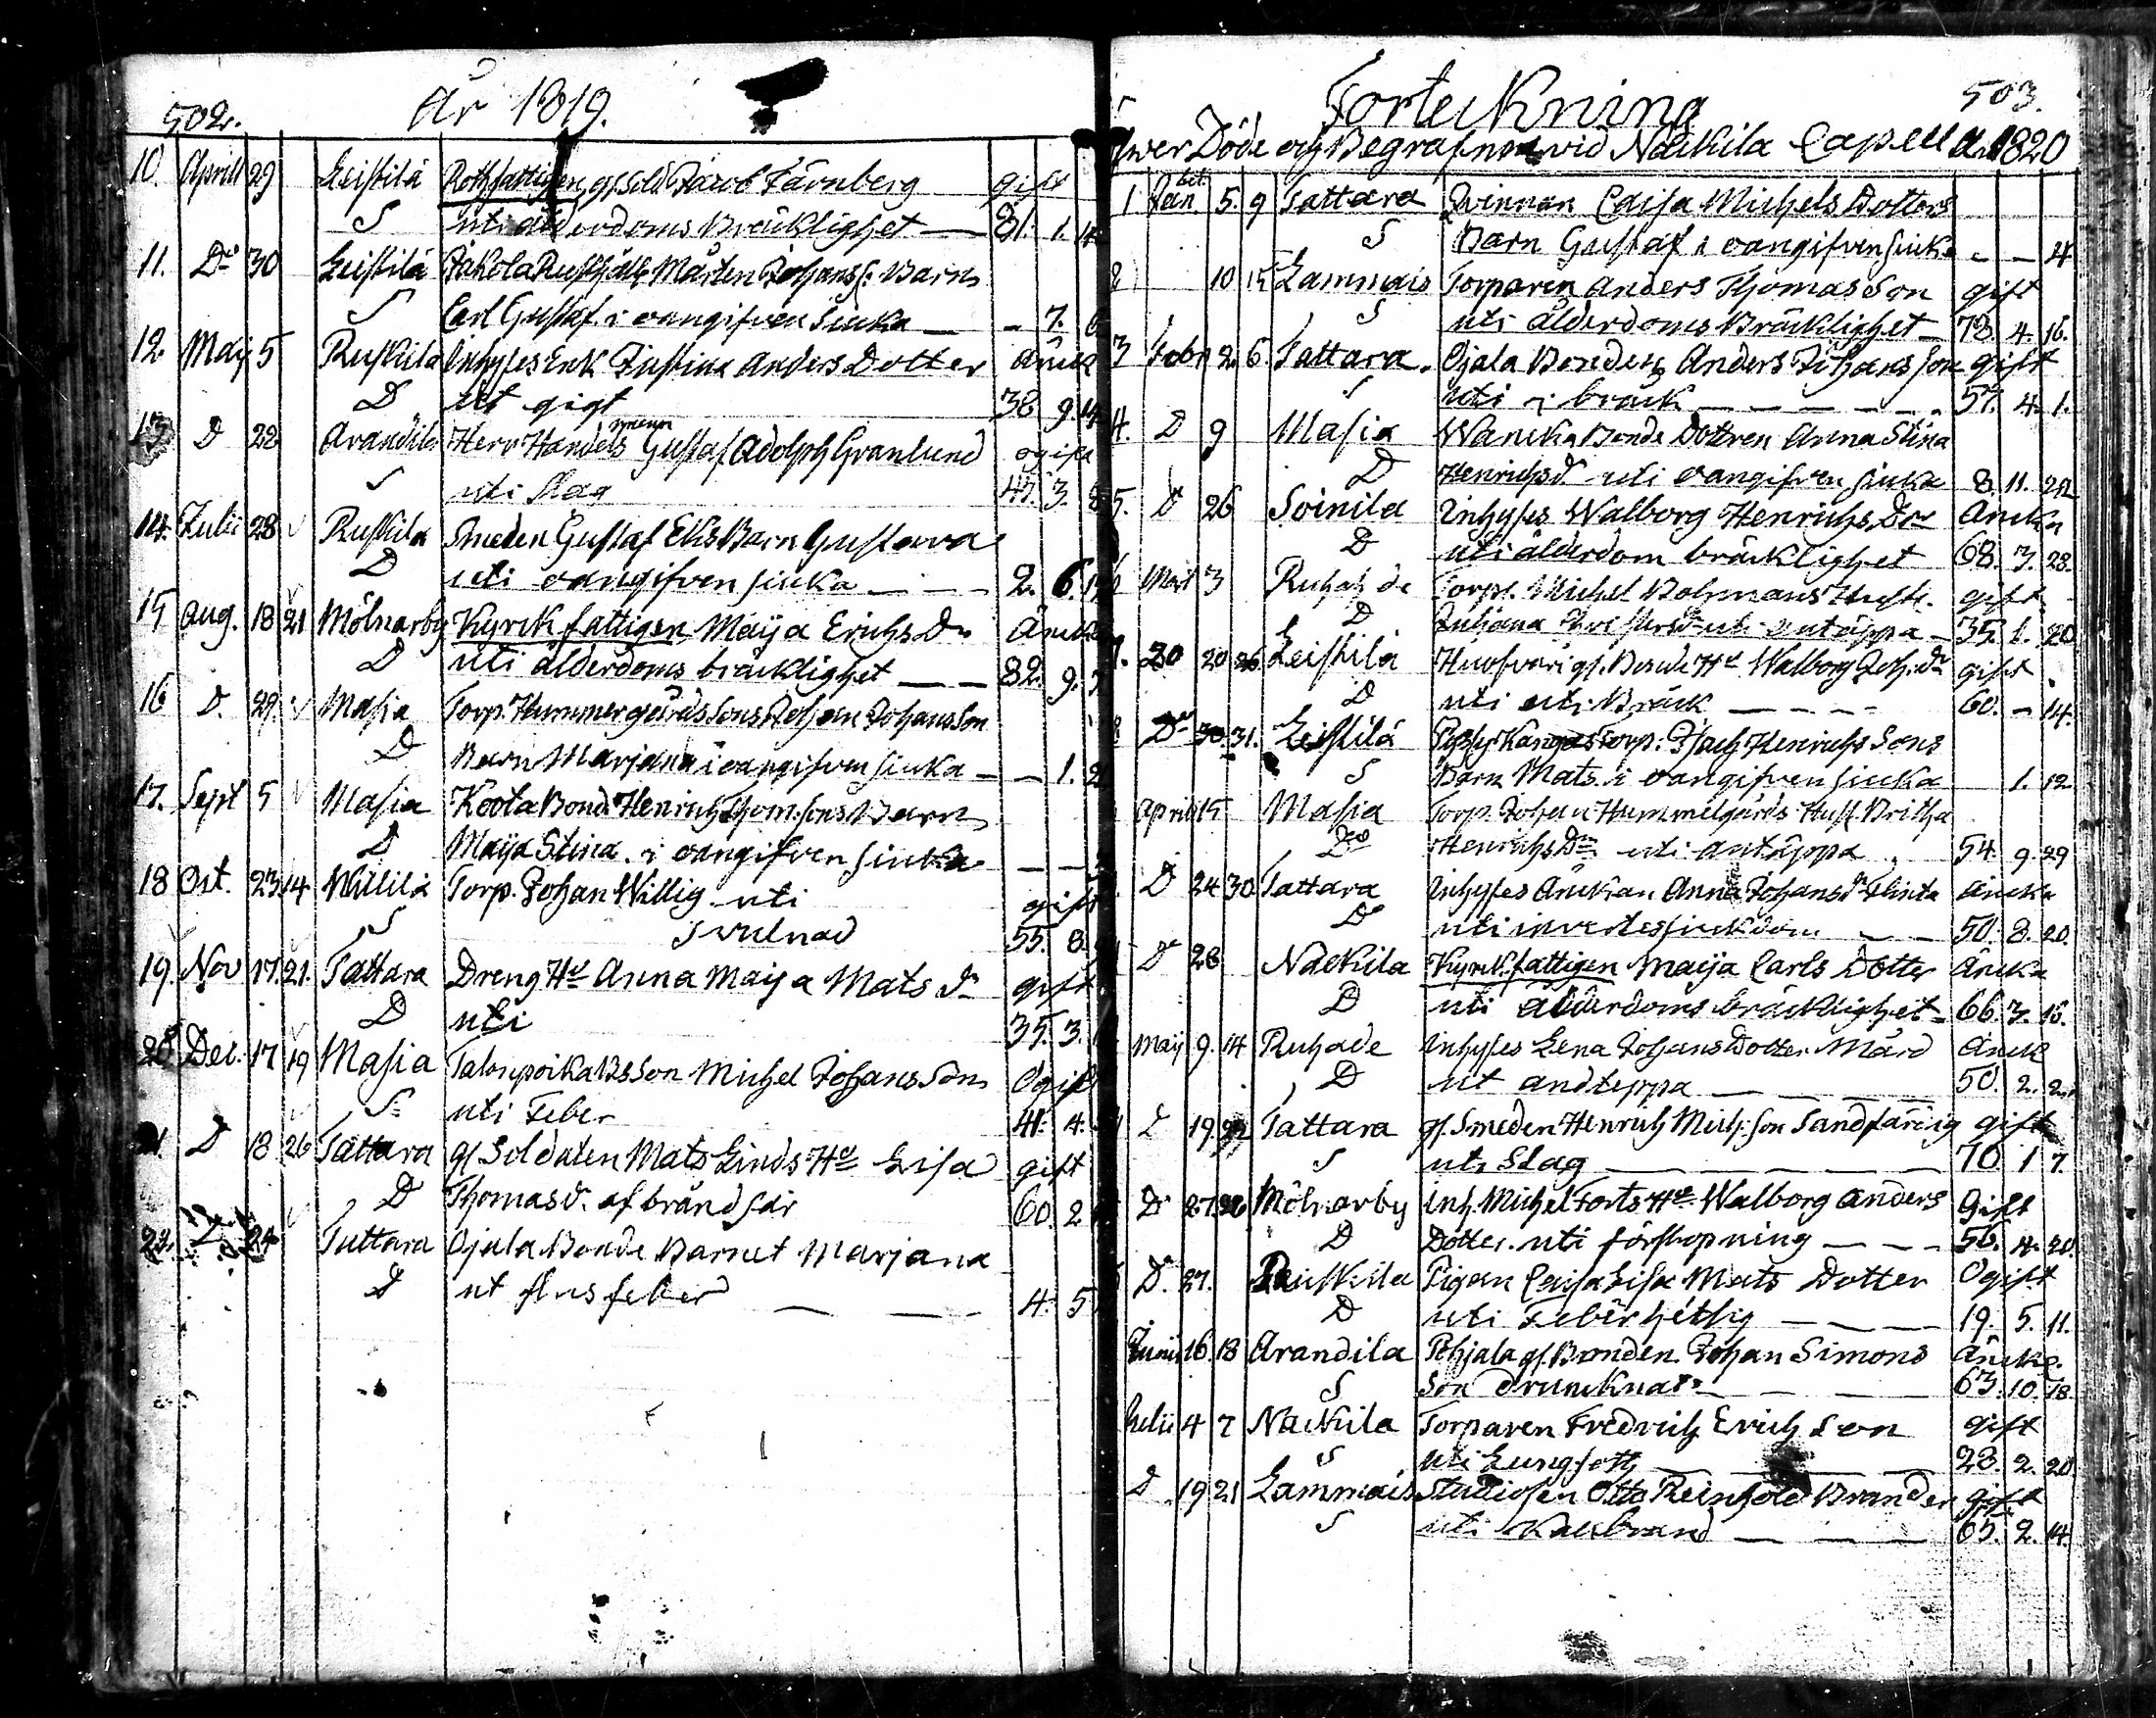 502.
År 1819.
10. Aprill 29 Leistilä Rothfattigen gl. Sold. Jacob Färnberg gift
S uti ålderdoms Bräcklighet 81. 1.
11. Do 30 Leistilä Mårten Johanss: Barn
S Carl Gustaf i oangifven siuka 7.
12. Maij 5 Ruskila Inhyses Enk Justina Anders Dotter
D ut gigt 38 9. 14
13 D 22 Arandila Herr Handels mann Gustaf Adolph Granlund ogift
S uti Slag 47. 3. 8
14. Julii 28 Ruskila Smeden Gustaf Eks Barn Gustava
D uti oangifven siuka 2. 6.
15 Aug. 18 21 Mölnarby Kyrck fattigen Maija Erichs Dr
D uti ålderdoms bräcklighet 82. 9.
16 D. 29 Masia Torp. Hummergårds sons Johan Johansson
D Barn Marjana i oangifven siuka 1.
17. Sept 5 Masia Koota Bond Henrich Thom. sons Barn
D Maija Stina i oangifven siuka
18 Oct. 23 14 Willilä Torp. Johan Willig uti gift
S Svulnad 55. 8.
19. Nov 17. 21. Tattara Dreng Hu Anna Maija Mats dr gift
D uti 35. 3.
20 Dec. 17 19 Masia Talonpoika Bs Son Michel Johansson Ogift
S uti Feber 41. 4.
21 D 18 26 Tattara gl Soldaten Mats Linds Hu Lisa gift
D Thomas dr af brånd sår 60. 2
22. D 24 Tattara Ojala Bonde Barnet Marjana
D ut flus feber 4. 5
503.
Forteckning
öfwer Döde och Begrafne wid Nackila Capell A. 1820
1 Jan. 5. 9 Tattara Qvinnan Caisa Michels Dotters
S Barn Gustaf i oangifven siuka 4
2 10 15 Lammais Torparen Anders Thomas Son gift
S uti ålderdoms Bräcklighet 78. 4. 16.
3 Febr 2. 6. Tattara. Ojala Bonden Anders Johansson gift
S uti i bråck 57. 4. 1.
4. D 9 Masia Bonde Dottren Anna Stina
D Henrichs dr uti oangifven siuka 8. 11. 22
5. D 26 Soinila Inhyses Walborg Henrichs Dr Äncka
D uti ålderdom bräcklighet 68. 3. 28.
6 Mart 3 Torp. Michel Bohmans Hust. gift
D Juliana uti antäppa 35. 1. 20
7. 20 26 Leistilä Bonde Hu Walborg Joh. dr gift
D uti uti Bråck 60. - 14.
8 Do 30. 31. Leistilä Torp: Isach Henrichs Sons
S Barn Mats i oangifven siuka 1. 12
April 15 Masia Torp. Johan Hummelgårds Hust. Britha
Do Henrichs Dr uti antäppa 54. 9. 29
D 24 30 Tattara Inhyses Änckan Anna Johans dr Flinta äncka
D uti invertes siukdom 50. 8. 20.
D 28 Nackila Kyrck fattigen Maija Carls Dotter Äncka
D uti ålderdoms bräcklighet 66. 3. 16.
Maij 9. 14 Ruhade Inhyses Lena Johans Dotter Mård Änck
D ut andteppa 50. 2. 2.
D 19. Tattara gl. Smeden Henrich Mich. son Sandfärig gift
S uti Slag 70 1 7.
D 27. 28 Mölnarby Inh. Michel Forts Hu Walborg Anders Gift
D Dotter uti förstopning 56. 4. 20.
D. 27. Ruskila Pigan Caisa Lisa Mats Dotter Ogift
D uti Feber hetsig 19. 5. 11.
Junii 16. 18 Arandila Pohjala gl. Bonden Johan Simons
S Son druncknat 63. 10. 18.
Julii 4 7 Nackila Torparen Fredrich Erich Son gift
S uti Lungsott 28. 2. 20
D 19 21 Lammais Studiosen Otto Reinhold Brander gift
S uti Kallbrand 65. 2. 14.